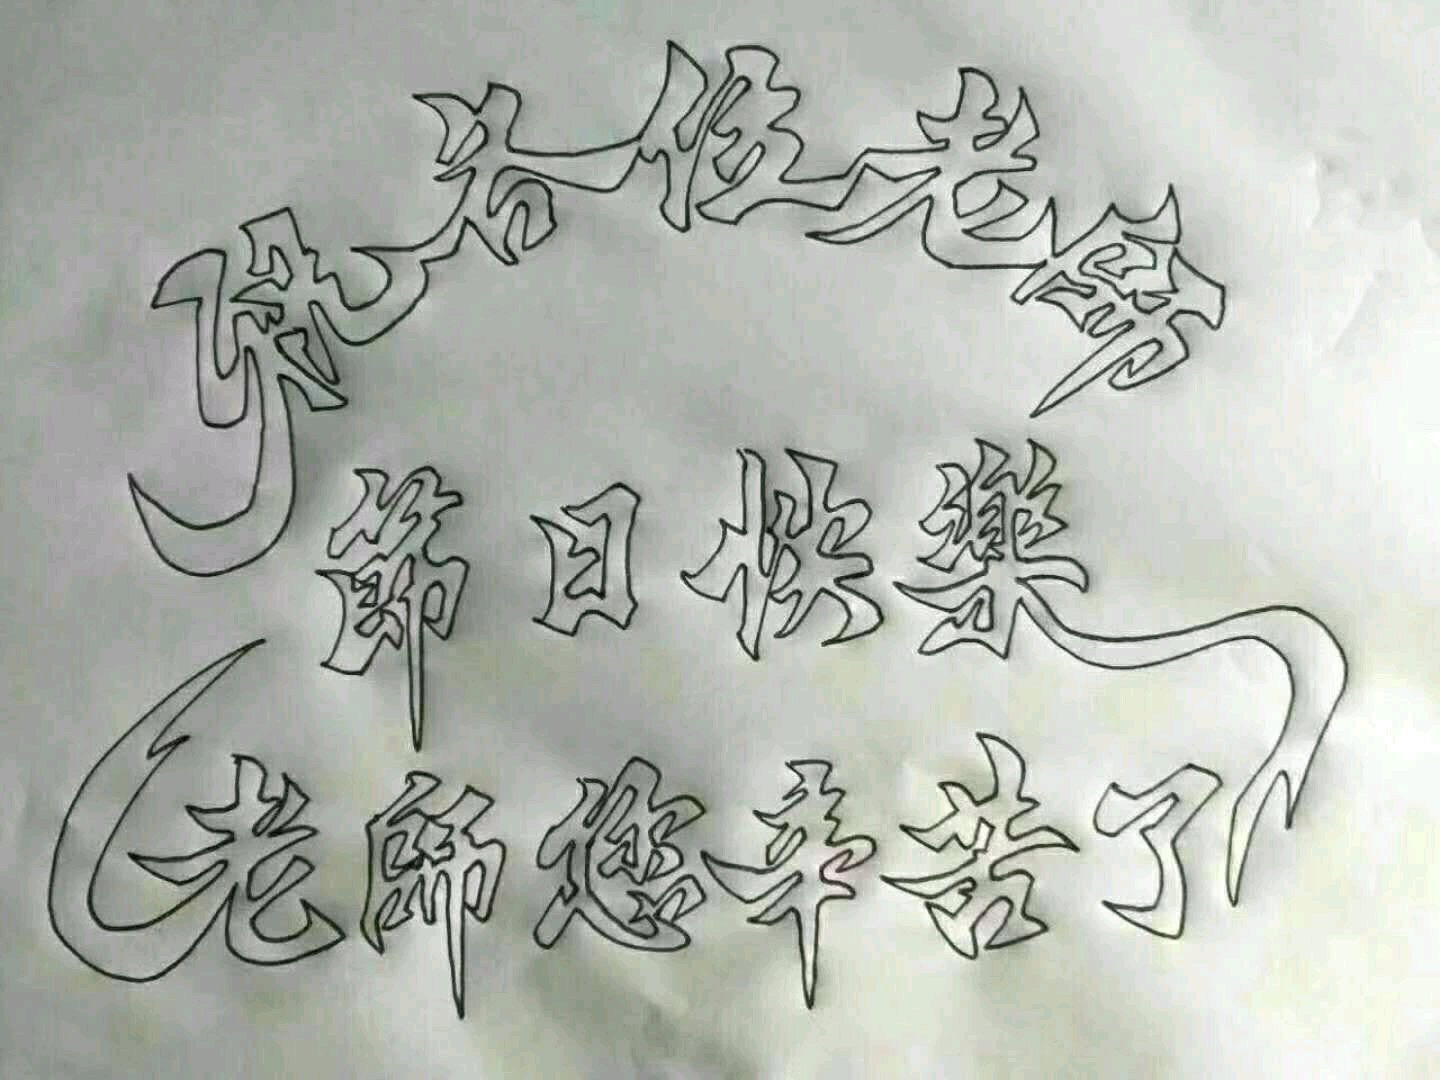 祝各位老
節日快樂
老師您辛苦了